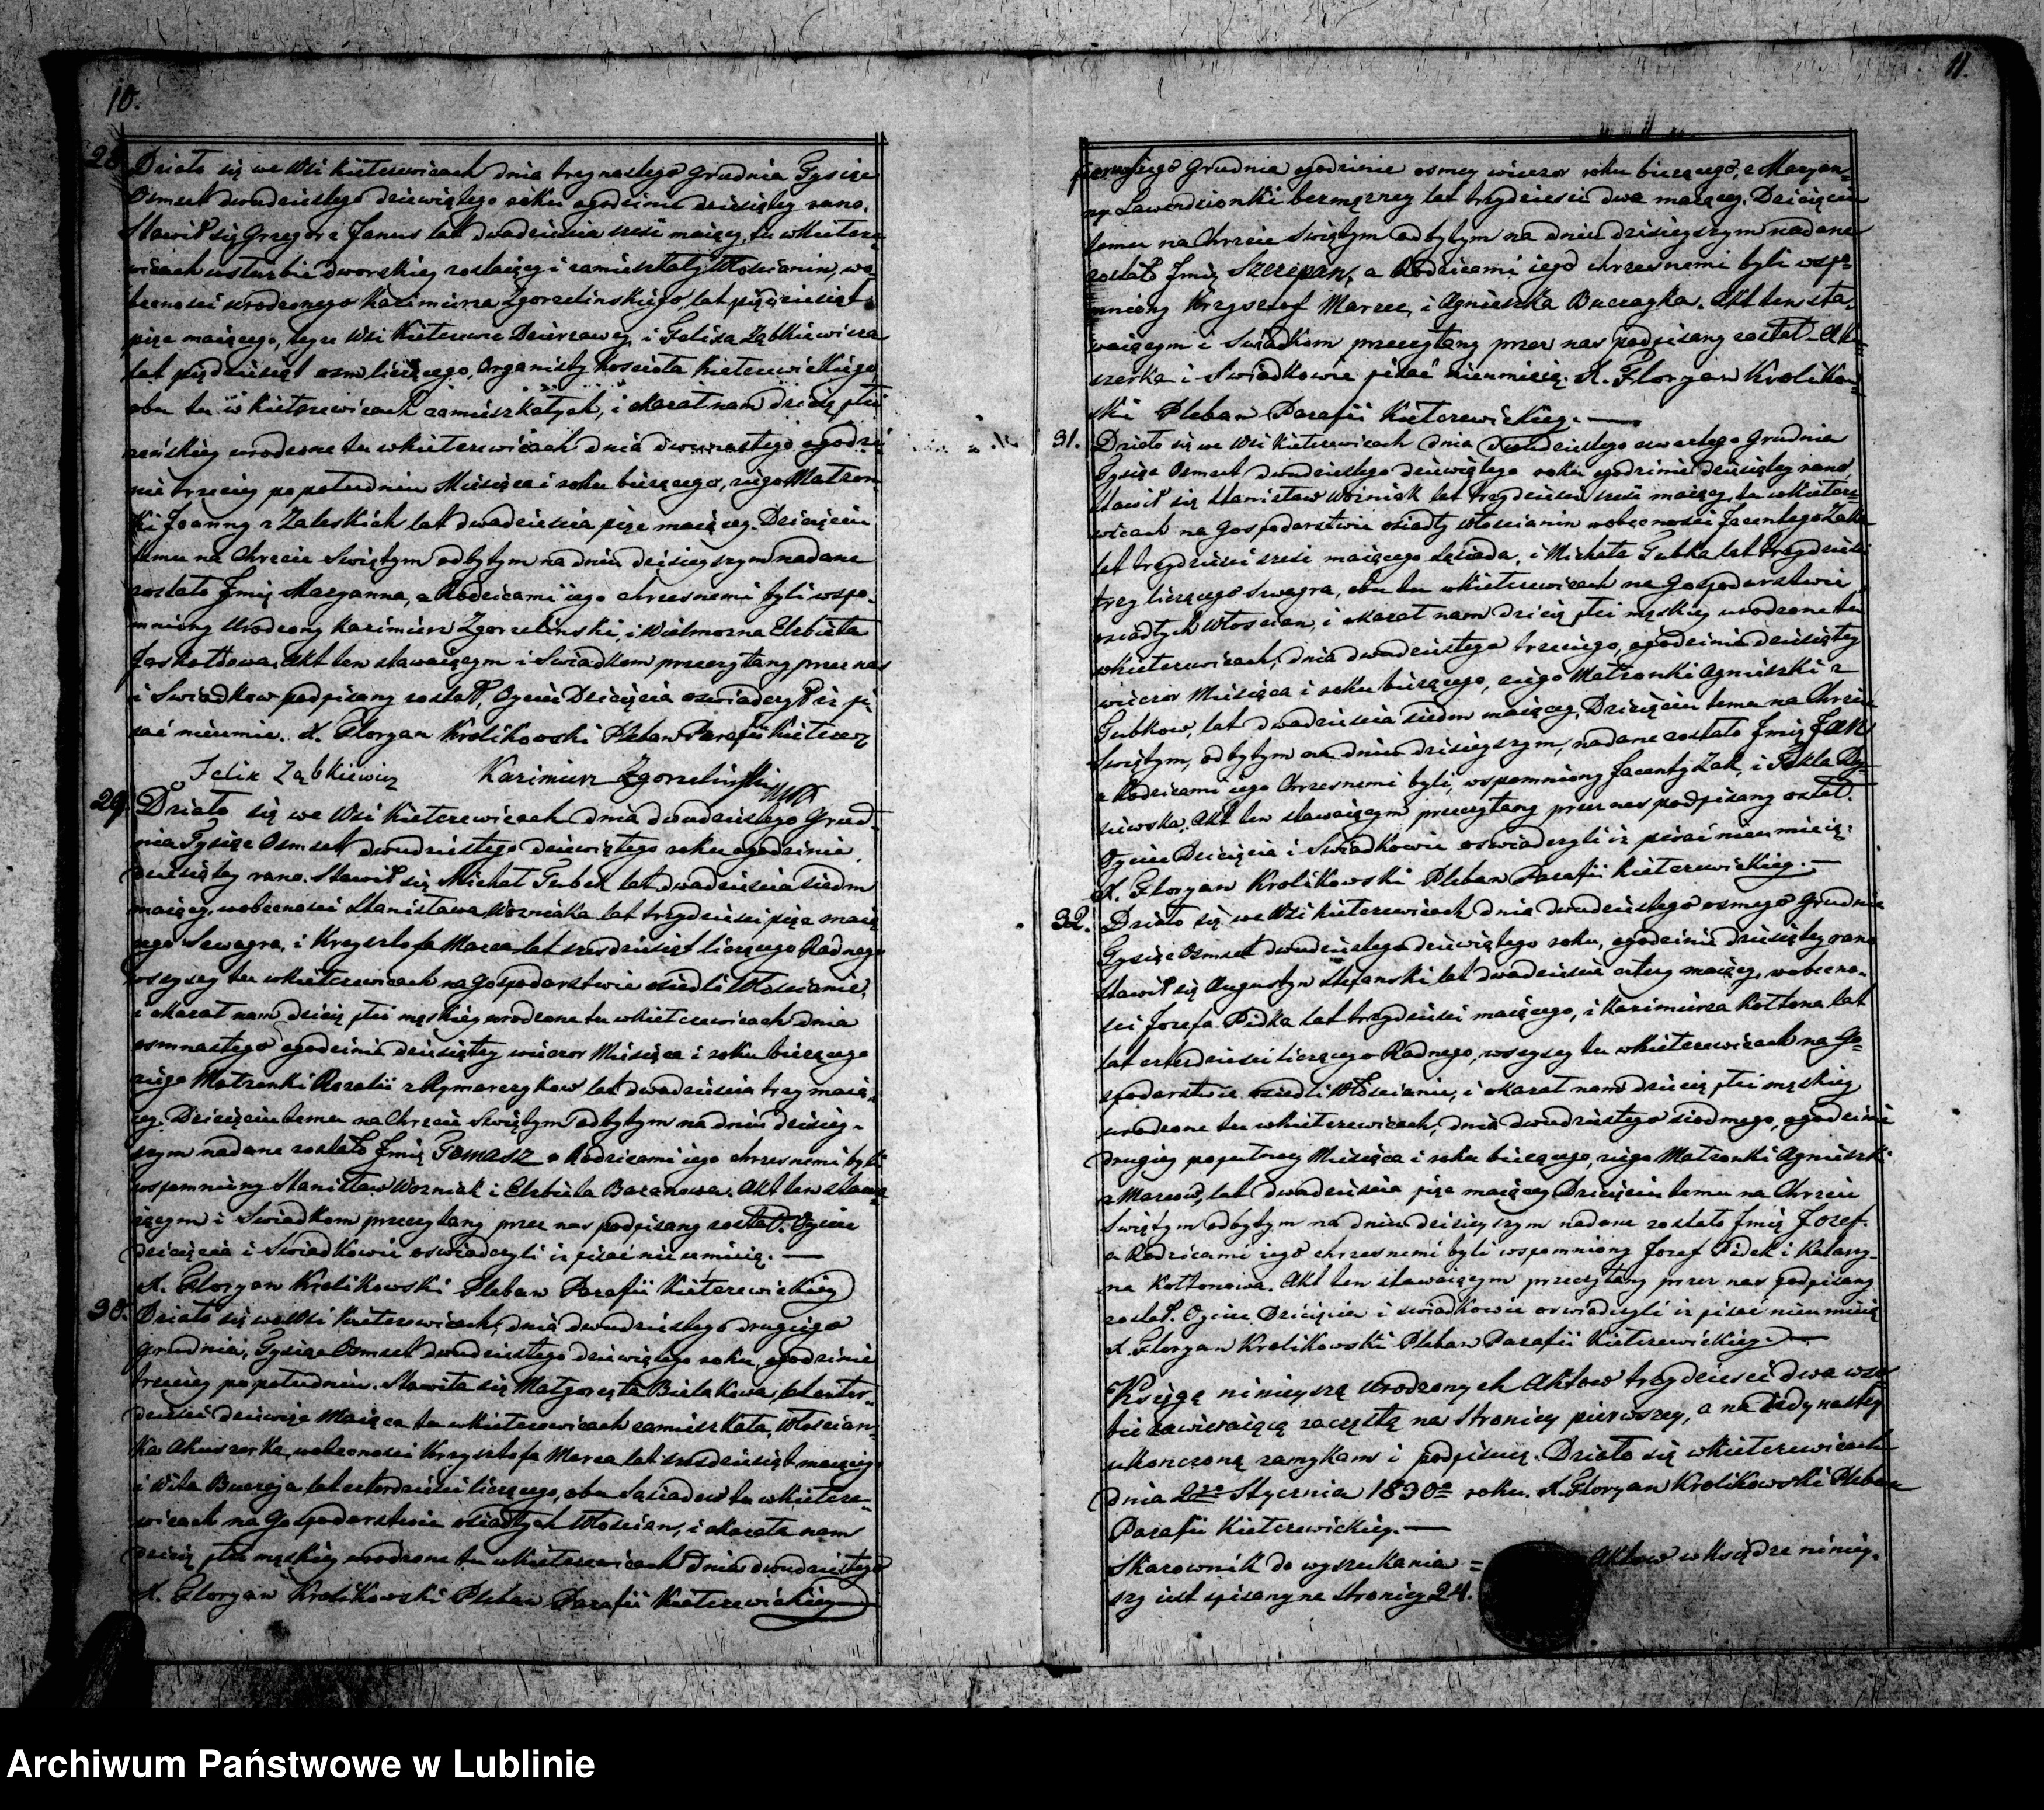 10.
28. Działo się we Wsi Kiełczewicach dnia trzynastego Grudnia Tysiąc
Osmset dwudziestego dziewiątego roku o godzinie dziesiątey rano.
Stawił się Grzegorz Janus lat dwadzieścia sześć maiący, tu w Kiełcze-
wicach w służbie dworskiey zostaiący i zamieszkały Włościanin, wo-
becności urodzonego Kazimierza Zgorzelinskiego, lat pięćdziesiąt
pięć maiącego, teyże Wsi Kiełczewic Dzierżawcy, i Felixa Ząbkiewicza
lat pięćdziesiąt osm liczącego, Organisty Kościoła Kiełczewickiego
obu tu w Kiełczewicach zamieszkałych, i okazał nam dziecię płci
żeńskiey urodzone tu w Kiełczewicach dnia dwunastego o godzi-
nie trzeciey po południu Miesiąca i roku bieżącego, z iego Małżon-
ki Joanny z Zaleskich lat dwadzieścia pięć maiącey. Dziecięciu
temu na Chrzcie Swiętym odbytym na dniu dzisieyszym nadane
zostało Imię Maryanna, a Rodzicami iego chrzesnemi byli wspo-
mniony Urodzony Kazimierz Zgorzelinski, i Wielmożna Elżbieta
Jaskołdowa. Akt ten stawaiącym i Swiadkom przeczytany przez nas
i Swiadkow podpisany został, Oyciec Dziecięcia oswiadczył iż pi-
sać nieumie. X. Floryan Krolikowski Pleban Parafii Kiełczew:
Felix Ząbkiewicz Kazimierz Zgorzelinski
29. Działo się we Wsi Kiełczewicach dnia dwudziestego Grud-
nia Tysiąc Osmset dwudziestego dziewiątego roku o godzinie
dziesiątey rano. Stawił się Michał Gubek lat dwadzieścia siedm
maiący, wobecności Stanisława Wozniaka lat trzydzieści pięć maią-
cego Szwagra, i Krzysztofa Marca lat szesdziesiąt liczącego Radnego
wszyscy tu w Kiełczewicach na Gospodarstwie osiedli Włościanie,
i okazał nam dziecię płci męskiey urodzone tu w Kiełczewicach dnia
osmnastego o godzinie dziesiątey wieczor Miesiąca i roku bieżącego
z iego Małżonki Rozalii z Rymarczykow lat dwadzieścia trzy maią-
cey. Dziecięciu temu na Chrzcie Swiętym odbytym na dniu dzisiey-
szym nadane zostało Imię Tomasz a Rodzicami iego chrzesnemi byli
wspomniony Stanisław Wozniak i Elżbieta Baranowa. Akt ten stawa-
iącym i Swiadkom przeczytany przez nas podpisany został. Oyciec
dziecięcia i Swiadkowie oswiadczyli iż pisać nie umieią. —
X. Floryan Krolikowski Pleban Parafii Kiełczewickiey
30. Działo się we Wsi Kiełczewicach, dnia dwudziestego drugiego
Grudnia, Tysiąc Osmset dwudziestego dziewiątego roku, o godzinie
trzeciey po południu. Stawiła się Małgorzata Bielakowa, lat czter-
dzieści dziewięć Maiąca tu w Kiełczewicach zamieszkała, Włościan-
ka Akuszerka, wobecności Krzysztofa Marca lat szesdziesiąt maiącego
i Wita Buczaja lat czterdzieści liczącego, obu Sąsiadow tu w Kiełcze-
wicach na Gospodarstwie osiadłych Włościan, i okazała nam
dziecię płci męskiey urodzone tu w Kiełczewicach Dnia dwudziestego
X. Floryan Krolikowski Pleban Parafii Kiełczewickiey
11.
pierwszego Grudnia o godzinie osmey wieczor roku bieżącego, z Maryan-
ny Lawendzionki bezmężney lat trzydzieści dwa maiącey. Dziecięciu
temu na Chrzcie Swiętym odbytym na dniu dzisieyszym nadane
zostało Imię Szczepan, a Rodzicami iego chrzesnemi byli wspo-
mniony Krzysztof Marzec, i Agnieszka Buczayka. Akt ten sta-
waiącym i Swiadkom przeczytany przez nas podpisany został. Aku-
szerka i Swiadkowie pisać nieumieią. X. Floryan Krolikow-
ski Pleban Parafii Kiełczewickiey. —
31. Działo się we Wsi Kiełczewicach dnia dwudziestego czwartego Grudnia
Tysiąc Osmset dwudziestego dziewiątego roku o godzinie dziesiątey rano
Stawił się Stanisław Wozniak lat trzydzieści sześć maiący, tu w Kiełcze-
wicach na Gospodarstwie osiadły Włościanin wobecności Jacentego Żaka
lat trzydzieści sześć maiącego Sąsiada, i Michała Gubka lat trzydzieści
trzy liczącego Szwagra, obu tu w Kiełczewicach na Gospodarstwie
osiadłych Włościan, i okazał nam dziecię płci męskiey urodzone tu
w Kiełczewicach, dnia dwudziestego trzeciego, o godzinie dziesiątey
wieczor Miesiąca i roku bieżącego, z iego Małżonki Agnieszki z
Gubkow, lat dwadzieścia siedm maiącey, Dziecięciu temu na Chrzcie
Swiętym, odbytym na dniu dzisieyszym, nadane zostało Imię Jan
a Rodzicami iego Chrzesnemi byli, wspomniony Jacenty Żak, i Tekla Ry-
siewska. Akt ten stawaiącym przeczytany przez nas podpisany został.
Oyciec Dziecięcia i Swiadkowie oswiadczyli iż pisać nieumieią.
X. Floryan Krolikowski Pleban Parafii Kiełczewickiey. —
32. Działo się we Wsi Kiełczewicach dnia dwudziestego osmego Grudnia
Tysiąc Osmset dwudziestego dziewiątego roku, o godzinie dziesiątey rano
Stawił się Augustyn Stefanski, lat dwadzieścia cztery maiący, wobecno-
ści Jozefa Pidka lat trzydzieści maiącego, i Kazimierza Kołtona lat
lat czterdzieści liczącego Radnego, wszyscy tu w Kiełczewicach na Go-
spodarstwie osiedli Włościanie, i okazał nam dziecię płci męskiey
urodzone tu w Kiełczewicach, dnia dwudziestego siodmego, o godzinie
drugiey popołudniu Miesiąca i roku bieżącego, z iego Małżonki Agnieszki
z Marcow, lat dwadzieścia pięć maiącey Dziecięciu temu na Chrzcie
Swiętym odbytym na dniu dzisieyszym nadane zostało Imię Jozef.
a Rodzicami iego chrzesnemi byli wspomniony Jozef Pidek i Katarzy-
na Kołtonowa. Akt ten stawaiącym przeczytany przez nas podpisany
został. Oyciec Dziecięcia i Swiadkowie oswiadczyli iż pisać nieumieią
X. Floryan Krolikowski Pleban Parafii Kiełczewickiey. —
Księgę ninieyszą Urodzonych Aktow trzydzieści dwa w so-
bie zawieraiącą zaczętą na Stronicy pierwszey, a na iedynastey
ukonczoną zamykam i podpisuię. Działo się w Kiełczewicach
dnia 2go Stycznia 1830o roku. X. Floryan Krolikowski Pleban
Parafii Kiełczewickiey. —
Skarownik do wyszukania = Aktow w Księdze niniey-
szy iest spisany na stronicy 24.
Archiwum Państwowe w Lublinie